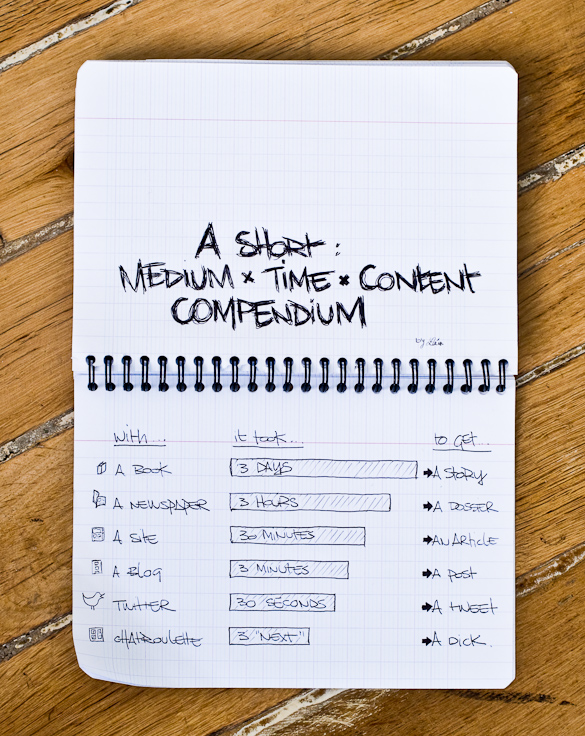 A SHORT:
MEDIUM × TIME × CONTENT
COMPENDIUM
by
with... it took... to GET...
A BOOK 3 DAYS A STORY
A NEWSPAPER 3 HOURS A DOSSIER
A SITE 30 MINUTES AN ARTICLE
A BLOG 3 MINUTES A POST
TWITTER 30 SECONDS A TWEET
CHATROULETTE 3 "NEXT" A DICK.